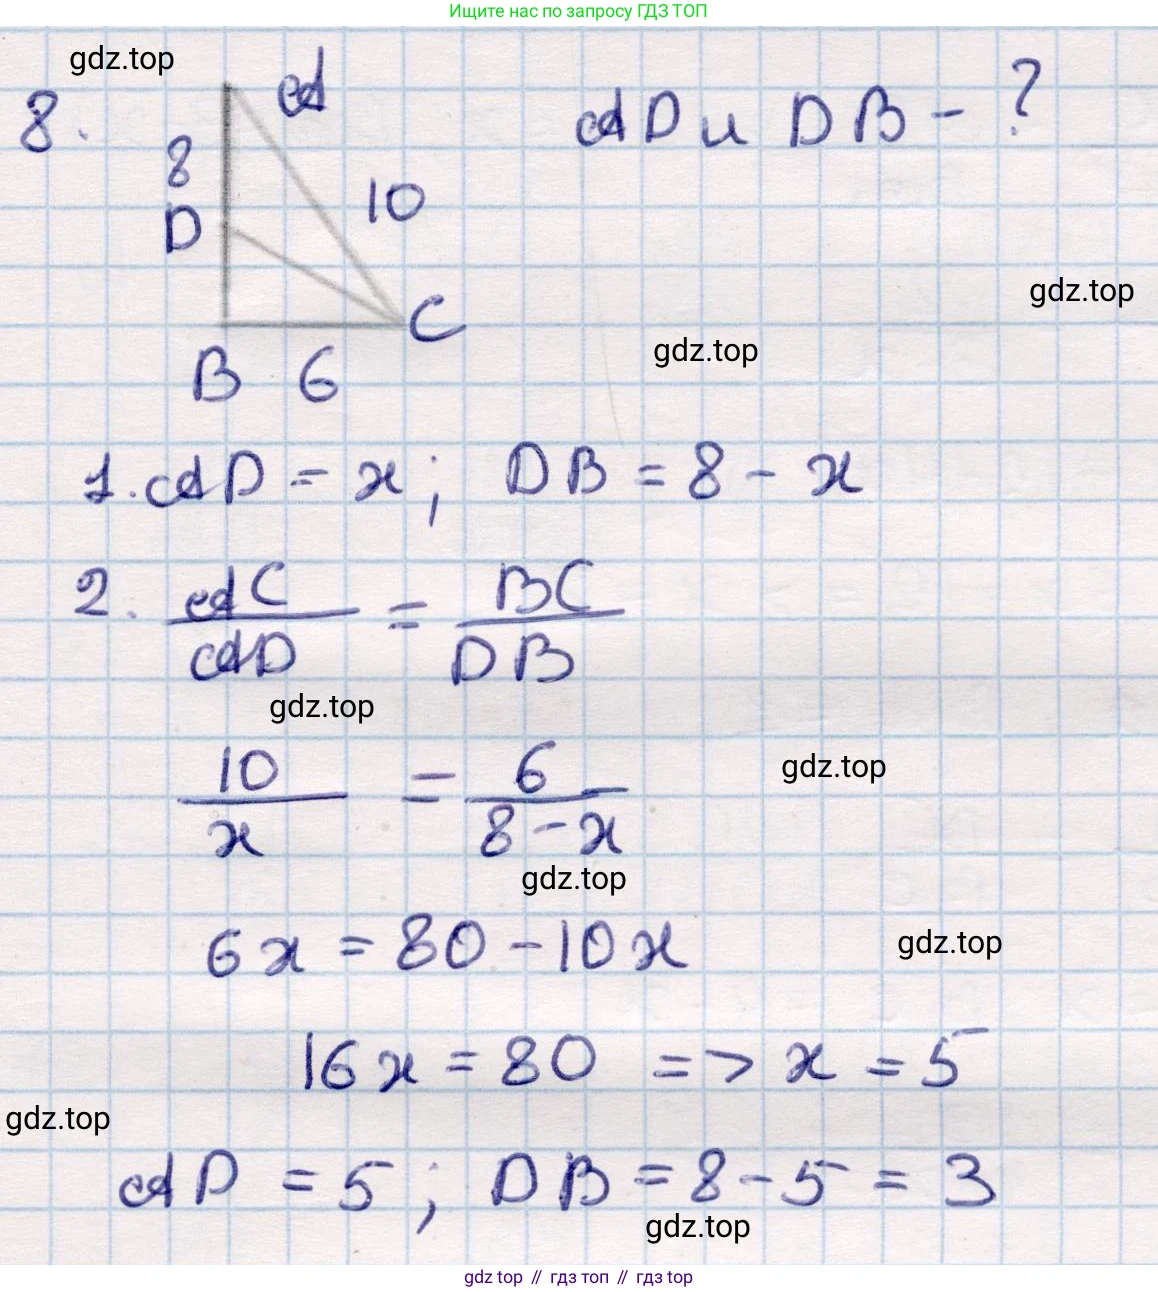 Ищите нас по запросу ГДЗ ТОП
gdz.top
8.
A
AD и DB - ?
8
D
10
gdz.top
C
gdz.top
B 6
1. AD = x; DB = 8 - x
2. AC/AD = BC/DB
gdz.top
10/x = 6/(8-x)
gdz.top
gdz.top
6x = 80 - 10x
gdz.top
16x = 80 => x = 5
gdz.top
AD = 5; DB = 8 - 5 = 3
gdz.top
gdz top // гдз топ // gdz top